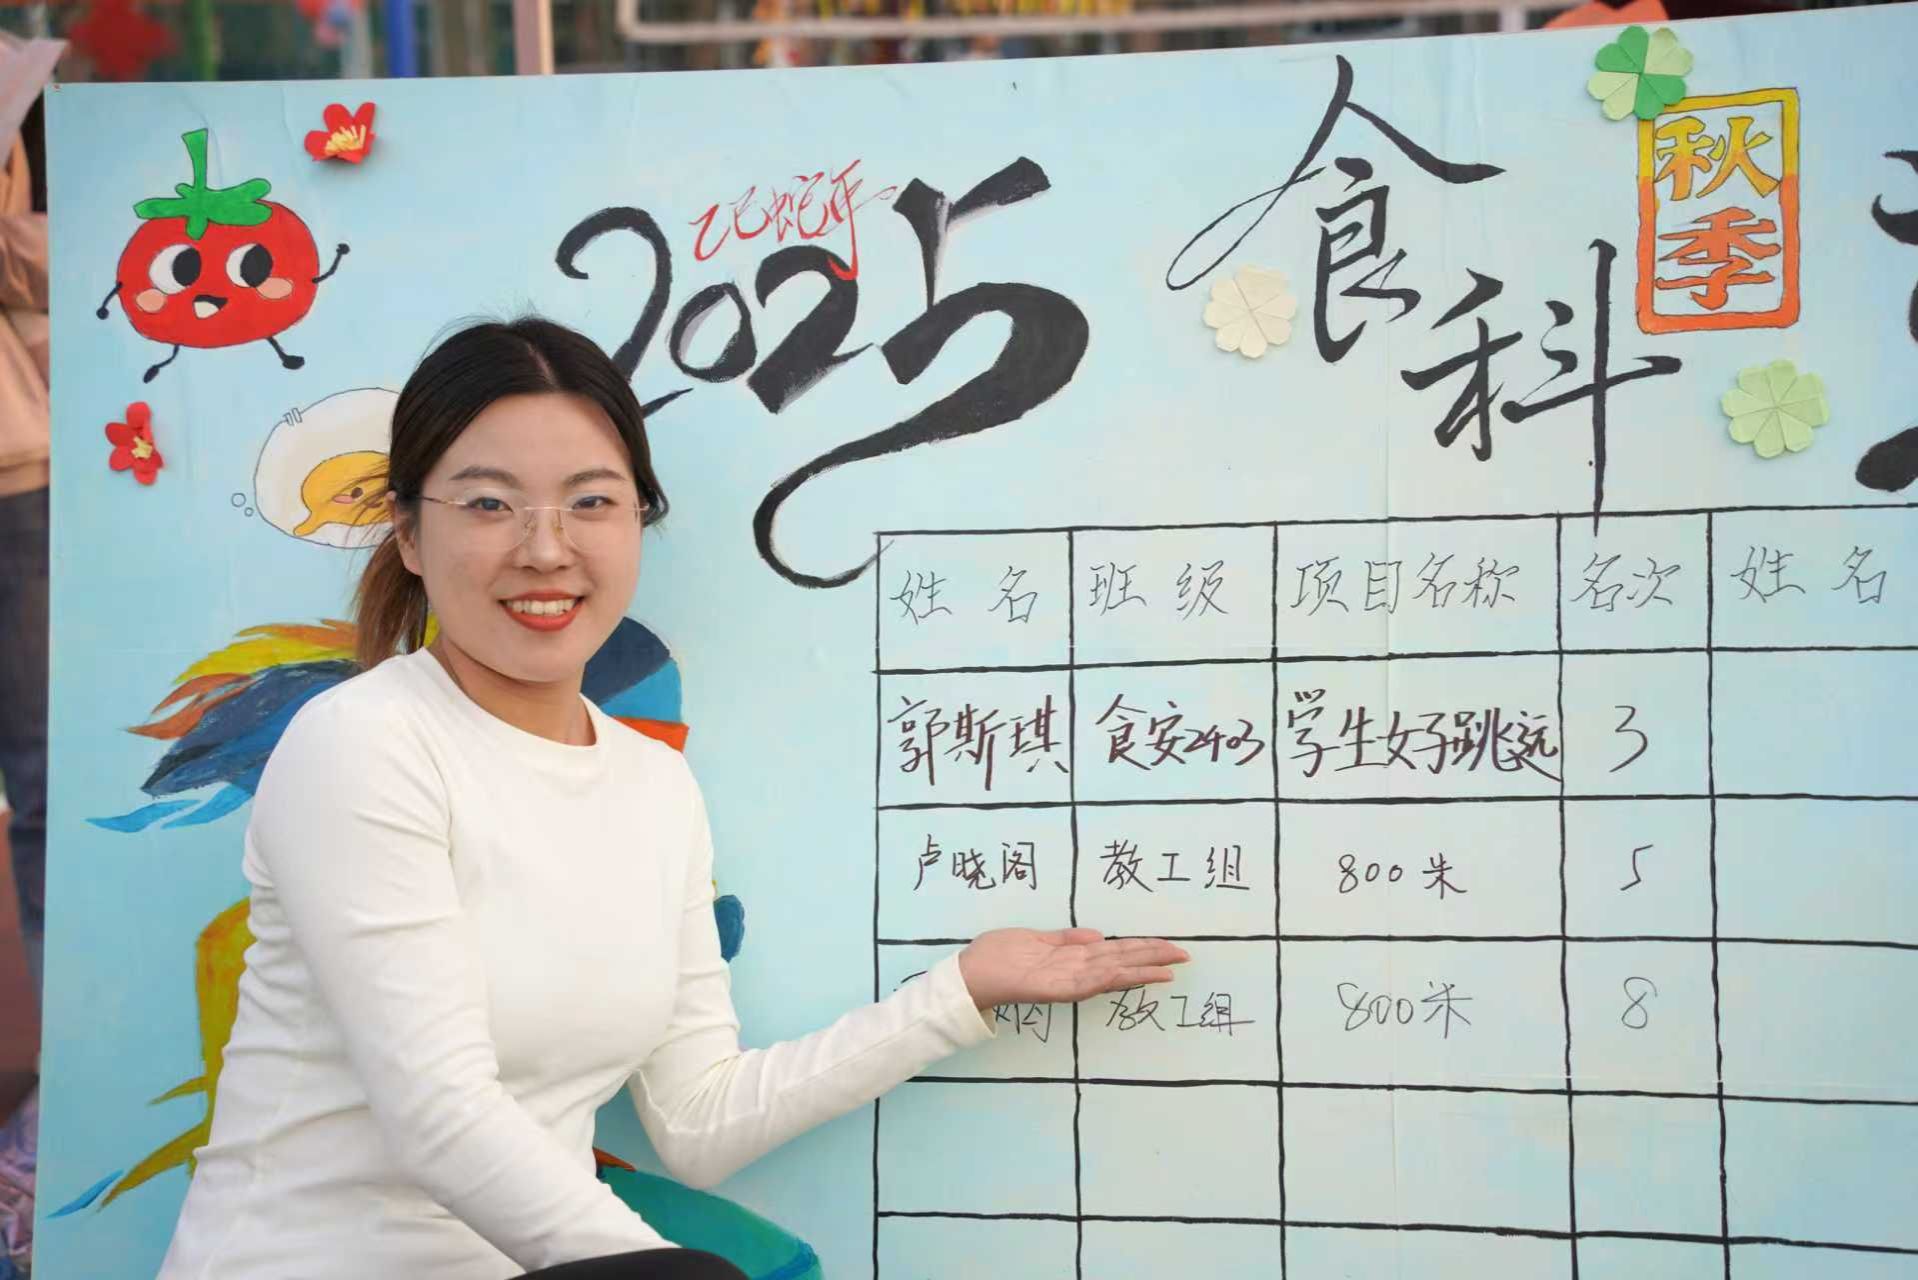 乙巳蛇年
2025
食科
秋季
姓名 班级 项目名称 名次 姓名
郭斯琪 食安2403 学生女子跳远 3
卢晓阁 教工组 800米 5
教工组 800米 8